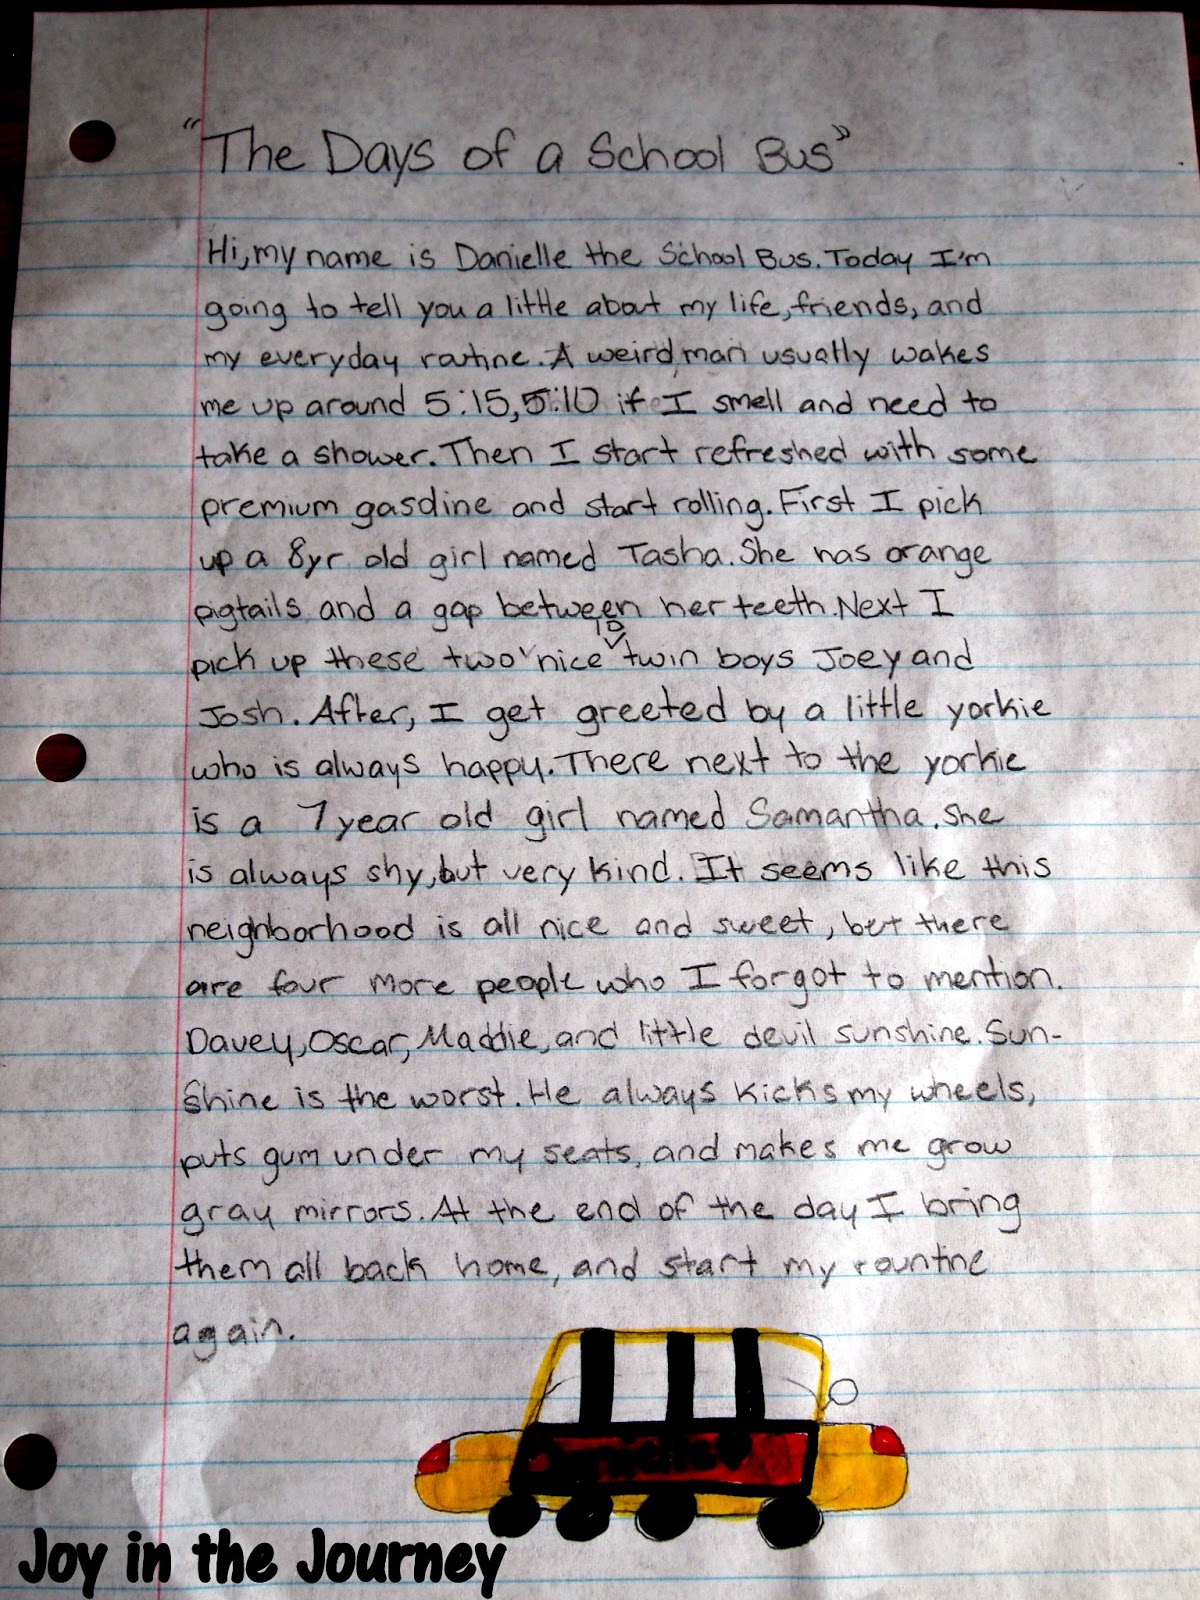 "The Days of a School Bus"
Hi, my name is Danielle the School Bus. Today I'm
going to tell you a little about my life, friends, and
my everyday routine. A weird man usually wakes
me up around 5:15, 5:10 if I smell and need to
take a shower. Then I start refreshed with some
premium gasoline and start rolling. First I pick
up a 8yr old girl named Tasha. She has orange
pigtails and a gap between her teeth. Next I
10
pick up these two nice twin boys Joey and
Josh. After, I get greeted by a little yorkie
who is always happy. There next to the yorkie
is a 7 year old girl named Samantha. She
is always shy, but very kind. It seems like this
neighborhood is all nice and sweet, but there
are four more people who I forgot to mention.
Davey, Oscar, Maddie, and little devil sunshine. Sun-
shine is the worst. He always kicks my wheels,
puts gum under my seats, and makes me grow
gray mirrors. At the end of the day I bring
them all back home, and start my rountine
again.
Danielle
Joy in the Journey